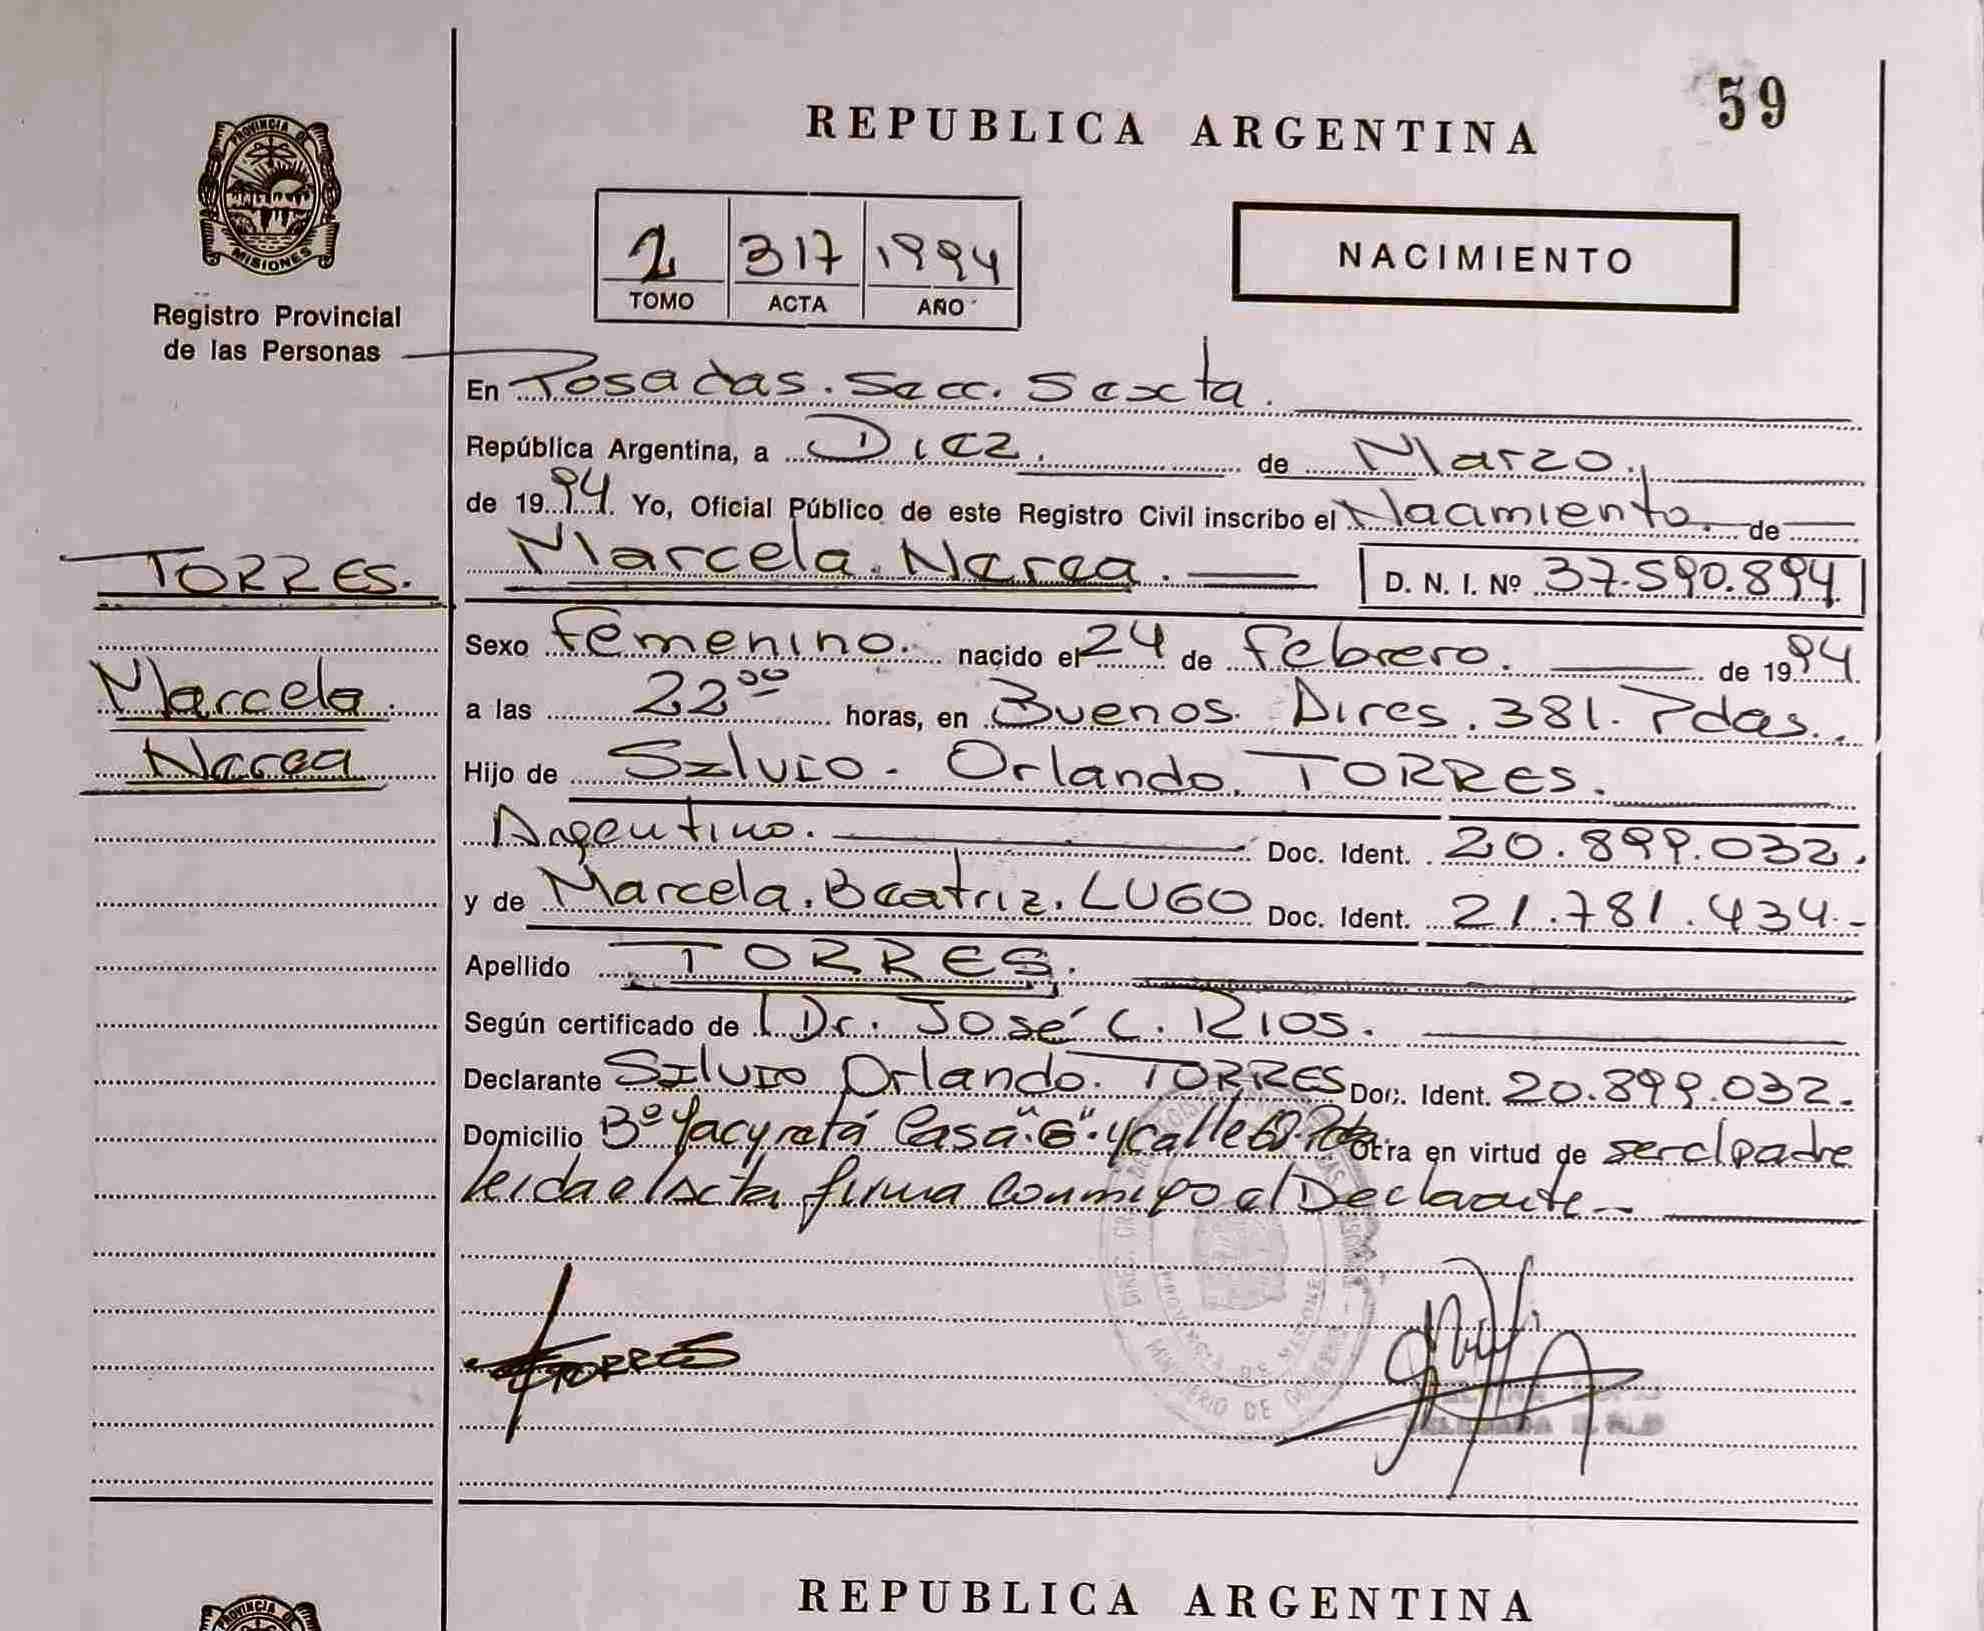 59
REPUBLICA ARGENTINA
PROVINCIA DE
MISIONES
Registro Provincial
de las Personas
2 317 1994
TOMO ACTA AÑO
NACIMIENTO
En Posadas. Secc. Sexta.
República Argentina, a Diez. de Marzo.
de 1994. Yo, Oficial Público de este Registro Civil inscribo el Nacimiento. de
Marcela. Nerea. D. N. I. Nº 37.590.894
TORRES.
Marcela
Nerea
Sexo femenino. nacido el 24 de febrero. de 1994
a las 22⁰⁰ horas, en Buenos Aires. 381. Pdas.
Hijo de Silvio. Orlando. TORRES.
Argentino. Doc. Ident. 20.899.032.
y de Marcela. Beatriz. LUGO Doc. Ident. 21.781.434.-
Apellido TORRES.
Según certificado de Dr. José C. Rios.
Declarante Silvio Orlando. TORRES Doc. Ident. 20.899.032.
Domicilio Bº Yacyretá Casa "6" y calle Obra en virtud de ser el padre
leida el Acta firma conmigo el Declarante.-
TORRES
MINISTERIO DE GOBIERNO
PROVINCIA DE MISIONES
REPUBLICA ARGENTINA
PROVINCIA DE